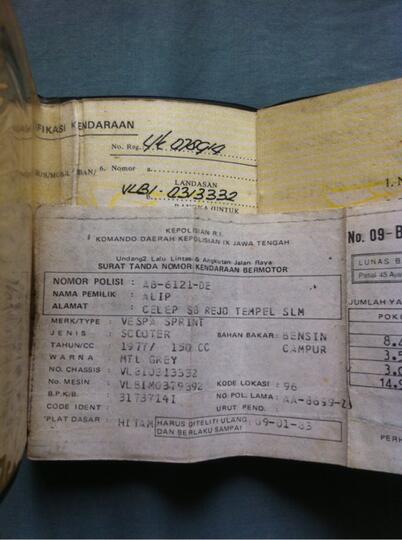 IFIKASI KENDARAAN
No. Reg.
6. Nomor a.
LANDASAN
b. VLB1-0313332
KEPOLISIAN R.I.
KOMANDO DAERAH KEPOLISIAN IX JAWA TENGAH
Undang2. Lalu Lintas & Angkutan Jalan Raya
SURAT TANDA NOMOR KENDARAAN BERMOTOR
NOMOR POLISI : AB-6121-DE
NAMA PEMILIK : ALIP
ALAMAT : CELEP SB REJO TEMPEL SLM
MERK/TYPE : VESPA SPRINT
JENIS : SCOOTER BAHAN BAKAR: BENSIN
TAHUN/CC : 1977/ 150 CC CAMPUR
WARNA MTL GREY
NO. CHASSIS : VLB10313332
No. MESIN : VLB1M0379392 KODE LOKASI : 96
B.P.K.B. : 3173714I NO. POL. LAMA : AA-8699-Z
CODE IDENT : URUT PEND. :
PLAT DASAR : HITAM HARUS DITELITI ULANG 09-01-83
DAN BERLAKU SAMPAI
No. 09-B
LUNAS B
Pasal 45 Aya
JUMLAH YA
8.4
3.5
3.0
14.9
PERH